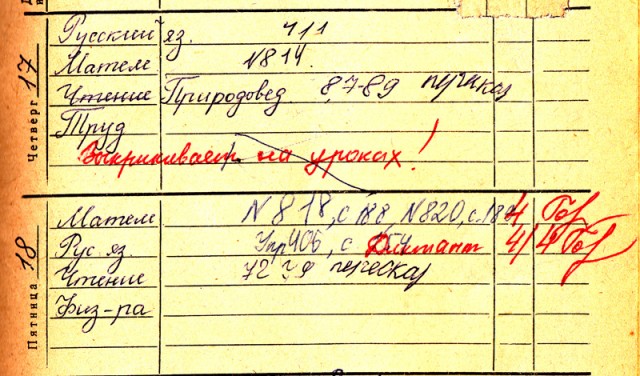 Четверг 17
Русский яз. 411
Матем N814.
Чтение Природовед 87-89 пересказ
Труд
Выкрикивает на уроках!
Пятница 18
Матем N818, с 188, N820, с.188 4
Рус. яз. Упр 406, с Диктант 4/4
Чтение 72 79 пересказ
Физ-ра